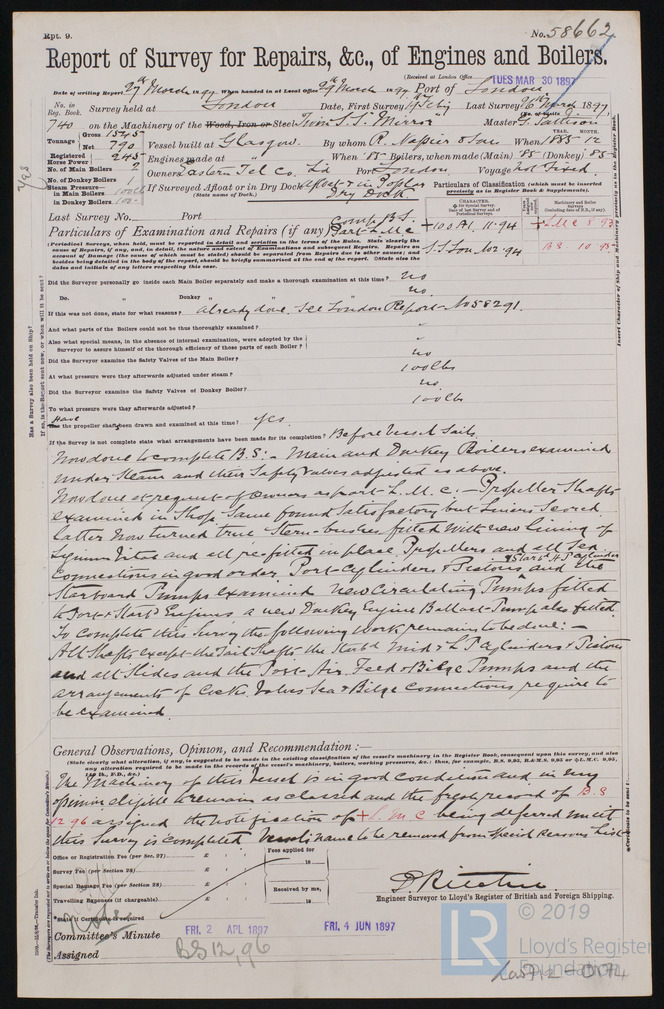 Rpt. 9.
No. 58662
Report of Survey for Repairs, &c., of Engines and Boilers.
(Received at London Office TUES MAR 30 1897
Date of writing Report 27th March 97 When handed in at Local Office 29th March 97 Port of London
No. in Reg. Book. Survey held at London Date, First Survey Last Survey 26th March 1897
740 on the Machinery of the Wood, Iron or Steel Twin S.S. "Mirror" Master
Tonnage Gross Net 790 Vessel built at Glasgow By whom R. Napier & Son When 1885 12
Registered Horse Power 245 Engines made at " When 85 Boilers, when made (Main) 85 (Donkey) 85
No. of Main Boilers 2 Owners Eastern Tel Co. Ld Port London Voyage Not Fixed
No. of Donkey Boilers 1
Steam Pressure in Main Boilers 100 lb If Surveyed Afloat or in Dry Dock Afloat & in Poplar Dry Dock
in Donkey Boilers 100
(State name of Dock.)
Particulars of Classification (which must be inserted precisely as in Register Book & Supplements).
Last Survey No. Port
Particulars of Examination and Repairs (if any) Comp B.S. Part L.M.C.
+100 A1 11.94
+LMC 8 93
S.S. Lon No2-94
BS 10 95
(Periodical Surveys, when held, must be reported in detail and seriatim in the terms of the Rules. State clearly the cause of Repairs, if any, and, in detail, the nature and extent of Examinations and subsequent Repairs. Repairs on account of Damage (the cause of which must be stated) should be separated from Repairs due to other causes; and besides being detailed in the body of the report, should be briefly summarised at the end of the report. State also the dates and initials of any letters respecting this case.
Did the Surveyor personally go inside each Main Boiler separately and make a thorough examination at this time? no
Do. " Donkey " " " no
If this was not done, state for what reasons? already done. See London Report No 58291.
And what parts of the Boilers could not be thus thoroughly examined? "
Also what special means, in the absence of internal examination, were adopted by the Surveyor to assure himself of the thorough efficiency of those parts of each Boiler? "
Did the Surveyor examine the Safety Valves of the Main Boiler? no
At what pressure were they afterwards adjusted under steam? 100 lbs
Did the Surveyor examine the Safety Valves of Donkey Boiler? no
To what pressure were they afterwards adjusted? 100 lbs
Have the propeller shafts been drawn and examined at this time? yes.
If the Survey is not complete state what arrangements have been made for its completion? Before Vessel Sails
Now done to complete B.S. - Main and Donkey Boilers examined
under Steam and their Safety Valves adjusted as above.
Now done at request of Owners as part L.M.C. - Propeller Shafts
examined in Shop. Same found satisfactory but liners scored
latter now turned true Stern-bushes fitted with new lining of
Lignum Vitae and all re-fitted in place Propellers and all Sea
connections in good order. Port Cylinders & Pistons & Starbd H.P. Cylinder and the
Starboard Pumps examined New Circulating Pumps fitted
to Port & Starbd Engines a new Donkey Engine Ballast Pump also fitted.
To complete this Survey the following work remains to be done: -
All Shafts except the Tail Shafts the Starbd Mid & L P Cylinders & Pistons
and all Slides and the Port Air Feed & Bilge Pumps and the
arrangements of Cocks Valves Sea & Bilge Connections require to
be examined.
General Observations, Opinion, and Recommendation :—
(State clearly what alteration, if any, is suggested to be made in the existing classification of the vessel's machinery in the Register Book, consequent upon this survey, and also any alteration required to be made in the records of the vessel's machinery, boilers, working pressures, &c.: thus, for example, B.S. 9,95, B.&M.S. 9,95 or L.M.C. 9,95, 140 lb., F.D., &c.)
The Machinery of this Vessel is in good condition and in my
opinion eligible to remain as classed and the fresh record of B.S
12 96 assigned the notification of + L.M.C being deferred until
this Survey is completed. Vessels name to be removed from Special Reasons List
Office or Registration Fee (per Sec. 27)
Survey Fee (per Section 28)
Special Damage Fee (per Section 28)
Travelling Expenses (if chargeable)
Fees applied for
Received by me,
D. Ritchie
Engineer Surveyor to Lloyd's Register of British and Foreign Shipping.
Committee's Minute FRI. 2 APL 1897 FRI. 4 JUN 1897
Assigned BS 12,96
LR
© 2019
Lloyd's Register
Foundation